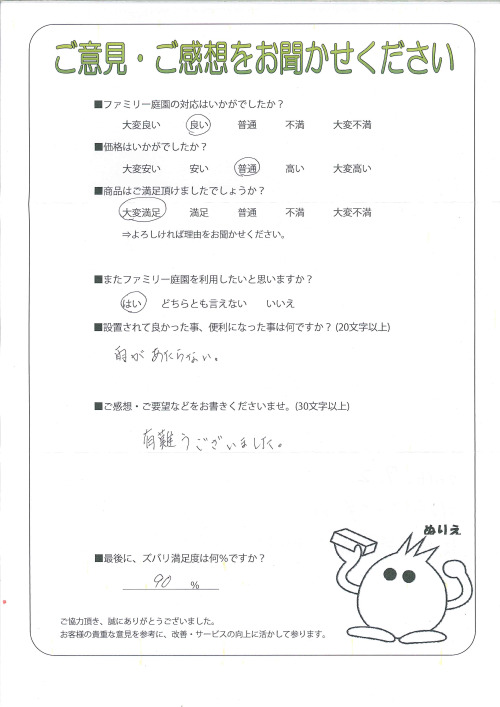 ご意見・ご感想をお聞かせください
■ファミリー庭園の対応はいかがでしたか？
大変良い 良い 普通 不満 大変不満
■価格はいかがでしたか？
大変安い 安い 普通 高い 大変高い
■商品はご満足頂けましたでしょうか？
大変満足 満足 普通 不満 大変不満
⇒よろしければ理由をお聞かせください。
■またファミリー庭園を利用したいと思いますか？
はい どちらとも言えない いいえ
■設置されて良かった事、便利になった事は何ですか？(20文字以上)
雨があたらない。
■ご感想・ご要望などをお書きくださいませ。(30文字以上)
有難うございました。
ぬりえ
■最後に、ズバリ満足度は何%ですか？
90 %
ご協力頂き、誠にありがとうございました。
お客様の貴重な意見を参考に、改善・サービスの向上に活かして参ります。